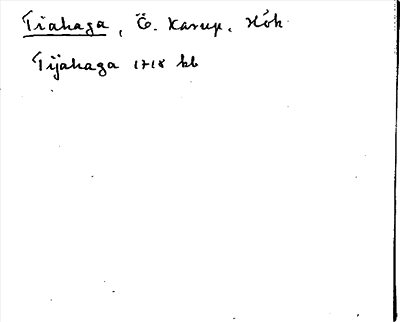 Tiahaga, Ö. Karup. Höh
Tijahaga 1718 kb